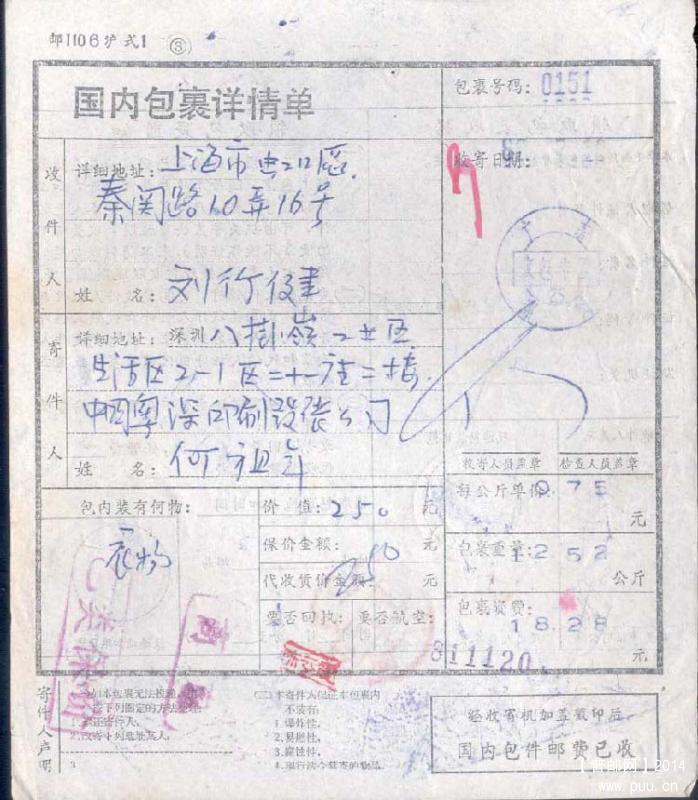 邮1106沪式1 ③
国内包裹详情单
包裹号码：0151
收件人
详细地址：上海市虹口区
秦关路10弄16号
姓 名：刘行健
收寄日期：
寄件人
详细地址：深圳八卦岭工业区
生活区2-1区二十一座二楼
中国粤深印刷 公司
姓 名：何祖
收寄人员盖章 检查人员盖章
包内装有何物：
衣物
价 值：250 元
保价金额：250 元
代收货价金额： 元
要否回执： 要否航空：
每公斤单价 975 元
包裹重量：1252 公斤
包裹资费：1828 元
811120
寄件人声明
(一)如本包裹无法投递，
按下列圈定的方法处理
1.退还寄件人，
2.改寄下列地址某人，
3
(二)本寄件人保证本包裹内
不装有：
1.爆炸性，
2.易燃性，
3.腐蚀性，
4.现行法令禁寄的物品。
经收寄机加盖戳印后
国内包件邮费已收
【普邮网】2014
www.puu.cn